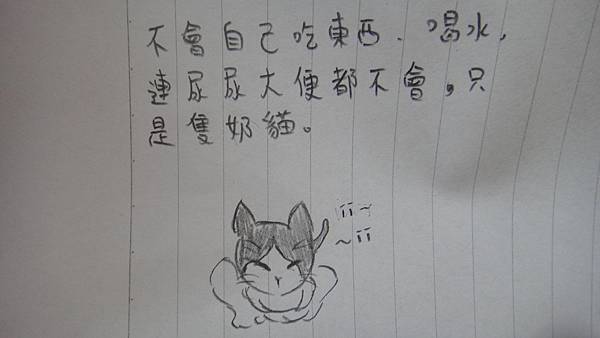 不會自己吃東西、喝水，
連尿尿大便都不會，只
是隻奶貓。